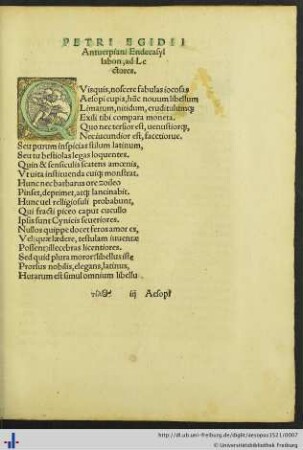 PETRI EGIDII
Antuerpiani Endecasyl
labon, ad Le
ctores.
QVisquis, noscere fabulas iocosas
Aesopi cupis, hũc nouum libellum
Limatum, nitidum, eruditulumq;
Exili tibi compara moneta.
Quo nec tersior est, uenustiorq;
Nec iucundior est, facetiorue.
Seu purum inspicias stilum latinum,
Seu tu bestiolas legas loquentes.
Quin & sensiculis scatens amœnis,
Vt uita instituenda cuiq; monstrat.
Hunc nec barbarus ore zoileo
Pinset, deprimet, atq; lancinabit.
Hunc uel religiosuli probabunt,
Qui fracti piceo caput cucullo
Ipsi sunt Cynicis seueriores.
Nullos quippe docet feros amor ex,
Vel quæ lædere, testulam iuuentæ
Possent illecebras licentiores.
Sed quid plura moror? libellus iste
Prorsus nobilis, elegans, latinus,
Horarum est simul omnium libellu
iij Aesopi
http://dl.ub.uni-freiburg.de/diglit/aesopus1521/0007
© Universitätsbibliothek Freiburg